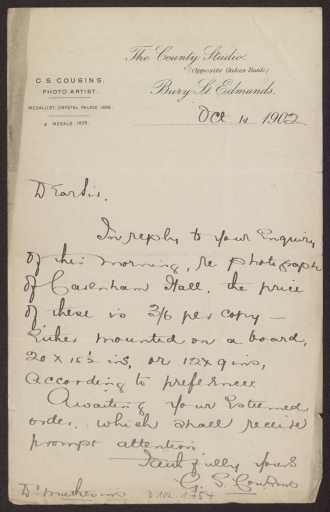 The County Studio.
(Opposite Union Bank)
Bury St Edmunds.
C. S. COUSINS.
PHOTO ARTIST.
MEDALLIST, CRYSTAL PALACE
MEDALS
Oct 1902
Dear Sir,
In reply to your Enquiry
of this morning, re photographs
of Hall. the price
of these is 2/6 per copy —
Either mounted on a board,
20 x 15½ ins, or 12 x 9 ins,
According to preference
Awaiting your Esteemed
order. which shall receive
prompt attention
Faithfully yours
C. S. Cousins